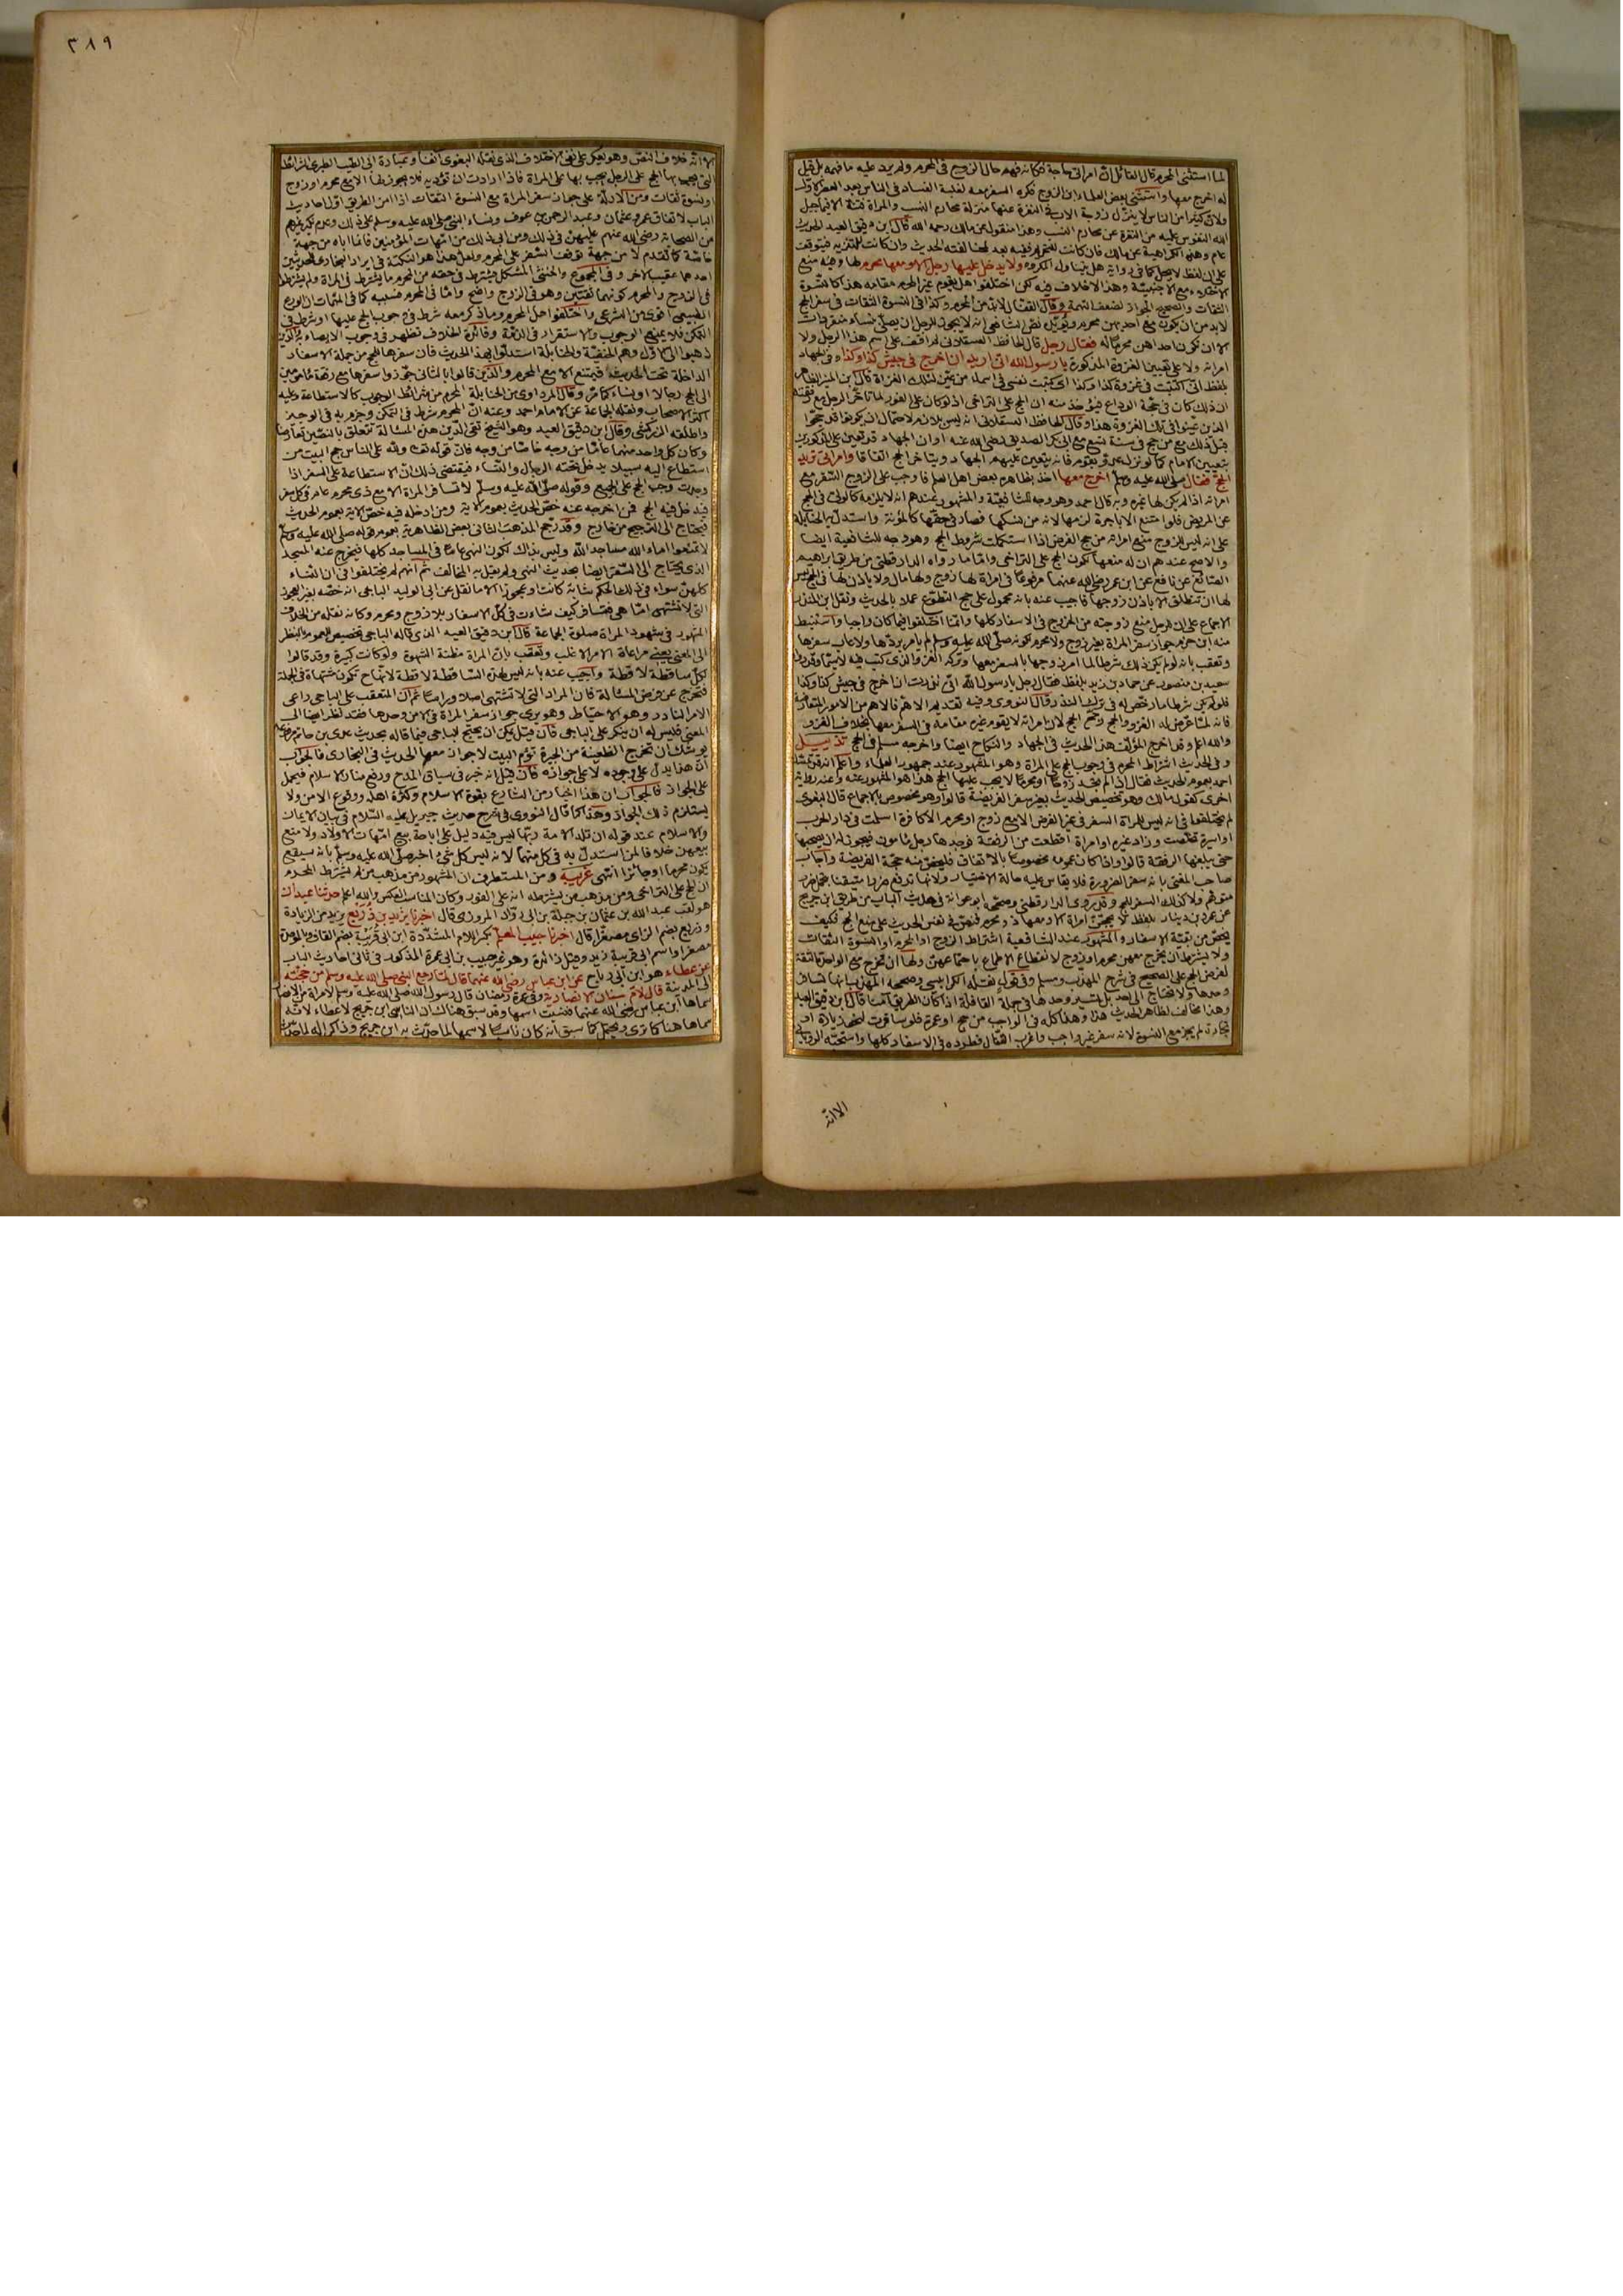 لما استثنى المحرم قال القائل ان امراتى حاجة فكانه فهم حال الزوج فى المحرم ولم يرد عليه ما فهمه بل قيل
له اخرج معها واستثنى بعض العلماء ابن الزوج فكره السفر معه لغلبة الفساد فى الناس بعد العصر الاول
ولان كثيرا من الناس لا ينزل زوجة الاب فى النفرة عنها منزلة محارم النسب والمراة فتنة الا فيما جبل
الله النفوس عليه من النفرة عن محارم النسب وهذا منقول عن مالك رحمه الله قال ابن دقيق العيد الحديث
عام وهذه الكراهية عن مالك فان كانت للتحريم ففيه بعد لمخالفته الحديث وان كانت للتنزيه فيتوقف
على ان لفظ لا يحل كما فى رواية هل يتناول المكروه ولا يدخل عليها رجل الا ومعها محرم لها وفيه منع
الاختلاء مع الاجنبية وهذا لا خلاف فيه لكن اختلفوا هل يقوم غير المحرم مقامه هذا كالنسوة
الثقات والصحيح الجواز لضعف التهمة وقال القفال لابد من المحرم وكذا فى النسوة الثقات فى سفر الحج
لابد من ان يكون مع احديهن محرم ويؤيده نص الشافعى انه لا يجوز للرجل ان يصلى بنساء منفردات
الا ان تكون احداهن محرما له فقال رجل قال الحافظ العسقلانى لم اقف على اسم هذا الرجل ولا
امراته ولا على تعيين الغزوة المذكورة يا رسول الله انى اريد ان اخرج فى جيش كذا وكذا وفى الجهاد
بلفظ انى اكتتبت فى غزوة كذا وكذا اى كتبت نفسى فى اسماء من عين لتلك الغزاة قال ابن المنير الظاهر
ان ذلك كان فى حجة الوداع فيؤخذ منه ان الحج على التراخى اذ لو كان على الفور لما تاخر الرجل مع رفقته
الذين عينوا فى تلك الغزوة هذا وقال الحافظ العسقلانى انه ليس بلازم لاحتمال ان يكونوا قد حجوا
قبل ذلك مع من حج فى سنة تسع مع ابى بكر الصديق رضى الله عنه او ان الجهاد قد تعين على المذكورين
بتعيين الامام كما لو نزل عدو بقوم فانه يتعين عليهم الجهاد ويتاخر الحج اتفاقا وامراتى تريد
الحج فقال صلى الله عليه وسلم اخرج معها اخذ بظاهره بعض اهل العلم فاوجب على الزوج السفر مع
امراته اذا لم يكن لها غيره وبه قال احمد وهو وجه للشافعية والمشهور عندهم انه لا يلزمه كالولى فى الحج
عن المريض فلو امتنع الا باجرة لزمها لانه من نسكها فصار فى حقها كالمؤنة واستدل به الحنابلة
على انه ليس للزوج منع امراته من حج الفرض اذا استكملت شروط الحج وهو وجه للشافعية ايضا
والاصح عندهم ان له منعها لكون الحج على التراخى واما ما رواه الدارقطنى من طريق ابراهيم
الصائغ عن نافع عن ابن عمر رضى الله عنهما مرفوعا فى امراة لها زوج ولها مال ولا ياذن لها فى الحج ليس
لها ان تنطلق الا باذن زوجها فاجيب عنه بانه محمول على حج التطوع عملا بالحديث ونقل ابن المنذر
الاجماع على ان للرجل منع زوجته من الخروج فى الاسفار كلها وانما اختلفوا فيما كان واجبا واستنبط
منه ابن حزم جواز سفر المراة بغير زوج ولا محرم لكونه صلى الله عليه وسلم لم يامر بردها ولا عاب سفرها
وتعقب بانه لو لم يكن ذلك شرطا لما امر زوجها بالسفر معها وتركه الغزو الذى كتب فيه لاسيما وقد رواه
سعيد بن منصور عن حماد بن زيد بلفظ فقال رجل يا رسول الله انى نذرت ان اخرج فى جيش كذا وكذا
فلو لم يكن شرطا ما رخص له فى ترك النذر وقال النووى وفيه تقديم الاهم فالاهم من الامور المتعارضة
فانه لما عرض له الغزو والحج رجح الحج لان امراته لا يقوم غيره مقامه فى السفر معها بخلاف الغزو
والله اعلم وقد اخرج المؤلف هذا الحديث فى الجهاد والنكاح ايضا واخرجه مسلم فى الحج تذييل
وفى الحديث اشتراط المحرم فى وجوب الحج على المراة وهو المشهور عند جمهور العلماء واعلم انه قد تمسك
احمد بعموم الحديث فقال اذا لم تجد زوجا او محرما لا يجب عليها الحج هذا هو المشهور عنه وعنه رواية
اخرى كقول مالك وهو تخصيص الحديث بغير سفر الفريضة قالوا وهو مخصوص بالاجماع قال البغوى
لم يختلفوا فى انه ليس للمراة السفر فى غير الفرض الا مع زوج او محرم الا كافرة اسلمت فى دار الحرب
او اسيرة تخلصت وزاد غيره او امراة انقطعت من الرفقة فوجدها رجل مامون فيجوز له ان يصحبها
حتى يبلغها الرفقة قالوا واذا كان عمومه مخصوصا بالاتفاق فليخص منه حجة الفريضة واجاب
صاحب المغنى بانه سفر الضرورة فلا يقاس عليه حالة الاختيار ولانها تدفع ضررا متيقنا بتحمل ضرر
متوهم ولا كذلك السفر للحج وقد روى الدارقطنى وصححه ابو عوانة فى حديث الباب من طريق ابن جريج
عن عمرو بن دينار بلفظ لا تحجن امراة الا ومعها ذو محرم فنص فى نفس الحديث على منع الحج فكيف
يخص من بقية الاسفار والمشهور عند الشافعية اشتراط الزوج او المحرم او النسوة الثقات
ولا يشترط ان يخرج معهن محرم او زوج لانقطاع الاطماع باجتماعهن ولها ان تخرج مع الواحدة الثقة
لفرض الحج على الصحيح فى شرح المهذب ومسلم وفى قول نقله الكرابيسى وصححه المهذب انها تسافر
وحدها ولا تحتاج الى احد بل تسير وحدها فى جملة القافلة اذا كان الطريق آمنا قال ابن دقيق العيد
وهذا مخالف لظاهر الحديث هذا وهذا كله فى الواجب من حج او عمرة فلو سافرت لنحو زيارة او
تجارة لم يجز مع النسوة لانه سفر غير واجب واغرب القفال فطرده فى الاسفار كلها واستحبه الرويانى
الا انه
٣٨٩
الا انه خلاف النص وهو يعكر على نفى الاختلاف الذى نقله البغوى آنفا وعبارة ابى الطيب الطبرى الشرائط
التى يجب بها الحج على الرجل يجب بها على المراة فاذا ارادت ان تؤديه فلا يجوز لها الا مع محرم او زوج
او نسوة ثقات ومن الادلة على جواز سفر المراة مع النسوة الثقات اذا امن الطريق اول احاديث
الباب لاتفاق عمر وعثمان وعبد الرحمن بن عوف ونساء النبى صلى الله عليه وسلم على ذلك وعدم نكير غيرهم
من الصحابة رضى الله عنهم عليهن فى ذلك ومن ابى ذلك من امهات المؤمنين فانما اباه من جهة
خاصة كما تقدم لا من جهة توقف السفر على المحرم ولعل هذا هو النكتة فى ايراد البخارى الحديثين
احدهما عقيب الاخر وفى المجموع والخنثى المشكل يشترط فى حقه من المحرم ما يشترط فى المراة ولم يشترطوا
فى الزوج والمحرم كونهما ثقتين وهو فى الزوج واضح واما فى المحرم فسببه كما فى المهمات ان الوازع
الطبيعى اقوى من الشرعى واختلفوا هل المحرم وما ذكر معه شرط فى وجوب الحج عليها او شرط فى
التمكن فلا يمنع الوجوب والاستقرار فى الذمة وفائدة الخلاف تظهر فى وجوب الايصاء به والذين
ذهبوا الى الاول وهم الحنفية والحنابلة استدلوا بهذا الحديث فان سفرها للحج من جملة الاسفار
الداخلة تحت الحديث فيمتنع الا مع المحرم والذين قالوا بالثانى جوزوا سفرها مع رفقة مامونين
الى الحج رجالا او نساء كما مر وقال المرداوى من الحنابلة المحرم من شرائط الوجوب كالاستطاعة وعليه
اكثر الاصحاب ونقله الجماعة عن الامام احمد وعنه ان المحرم شرط فى التمكن وجزم به فى الوجيز
واطلقه الزركشى وقال ابن دقيق العيد وهو الشيخ تقى الدين هذه المسالة تتعلق بالنصين تعارضا
وكان كل واحد منهما عاما من وجه خاصا من وجه فان قوله تعالى ولله على الناس حج البيت من
استطاع اليه سبيلا يدخل تحته الرجال والنساء فيقتضى ذلك ان الاستطاعة على السفر اذا
وجدت وجب الحج على الجميع وقوله صلى الله عليه وسلم لا تسافر المراة الا مع ذى محرم عام فى كل سفر
فيدخل فيه الحج فمن اخرجه عنه خص الحديث بعموم الاية ومن ادخله فيه خص الاية بعموم الحديث
فيحتاج الى الترجيح من خارج وقد رجح المذهب الثانى بعض الظاهرية بعموم قوله صلى الله عليه وسلم
لا تمنعوا اماء الله مساجد الله وليس بذاك لكون النهى عاما فى المساجد كلها فيخرج عنه المسجد
الذى يحتاج الى السفر ايضا بحديث النهى ولم يقل به المخالف ثم انهم لم يختلفوا فى ان النساء
كلهن سواء فى ذلك الحكم شابة كانت او عجوزا الا ما نقل عن ابى الوليد الباجى انه خصه بغير العجوز
التى لا تشتهى اما هى فتسافر كيف شاءت فى كل الاسفار بلا زوج ومحرم وكانه نقله من الخلاف
المشهور فى شهود المراة صلوة الجماعة قال ابن دقيق العيد الذى قاله الباجى تخصيص العموم بالنظر
الى المعنى يعنى مراعاة الامر الاغلب وتعقب بان المراة مظنة الشهوة ولو كانت كبيرة وقد قالوا
لكل ساقطة لاقطة واجيب عنه بانه ليس لهذه الساقطة لاقطة لانها ح تكون مشتهاة فى الجملة
فتخرج عن فرض المسالة فان المراد التى لا تشتهى اصلا وراسا ثم ان المتعقب على الباجى راعى
الامر النادر وهو الاحتياط وهو يرى جواز سفر المراة فى الامن وحدها فقد نظر ايضا الى
المعنى فليس له ان ينكر على الباجى فان قيل يمكن ان يحتج للباجى فيما قاله بحديث عدى بن حاتم مرفوعا
يوشك ان تخرج الظعينة من الحيرة تؤم البيت لا جوار معها الحديث فى البخارى فالجواب
ان هذا يدل على وجوده لا على جوازه فان قيل انه خبر فى سياق المدح ورفع منار الاسلام فيحمل
على الجواز فالجواب ان هذا اخبار من الشارع بقوة الاسلام وكثرة اهله ووقوع الامن ولا
يستلزم ذلك الجواز وهذا كما قال النووى فى شرح حديث جبريل عليه السلام فى بيان الايمان
والاسلام عند قوله ان تلد الامة ربتها ليس فيه دليل على اباحة بيع امهات الاولاد ولا منع
بيعهن خلافا لمن استدل به فى كل منهما لانه ليس كل شىء اخبر صلى الله عليه وسلم بانه سيقع
يكون محرما او جائزا انتهى غريبة ومن المستطرف ان المشهور من مذهب من لم يشترط المحرم
ان الحج على التراخى ومن مذهب من يشترطه انه على الفور وكان المناسب العكس والله اعلم حدثنا عبدان
هو لقب عبد الله بن عثمان بن جبلة بن ابى رواد المروزى قال اخبرنا يزيد بن زريع يزيد من الزيادة
وزريع بضم الزاى مصغرا قال اخبرنا حبيب المعلم بكسر اللام المشددة ابن ابى قريبة بضم القاف وبالموحدة
مصغرا واسم ابى قريبة زيد وقيل زائدة وهو غير حبيب بن ابى عمرة المذكور فى ثانى احاديث الباب
عن عطاء هو ابن ابى رباح عن ابن عباس رضى الله عنهما قال لما رجع النبى صلى الله عليه وسلم من حجته
الى المدينة قال لام سنان الانصارية وفى عمرة رمضان قال رسول الله صلى الله عليه وسلم لامراة من الانصار
سماها ابن عباس رضى الله عنهما فنسيت اسمها وقد سبق هناك ان الناسى ابن جريج لا عطاء لانه
سماها هنا كما ترى ويحتمل كما سبق انه كان ناسيا لاسمها لما حدث به ابن جريج وذاكرا له لما حدث